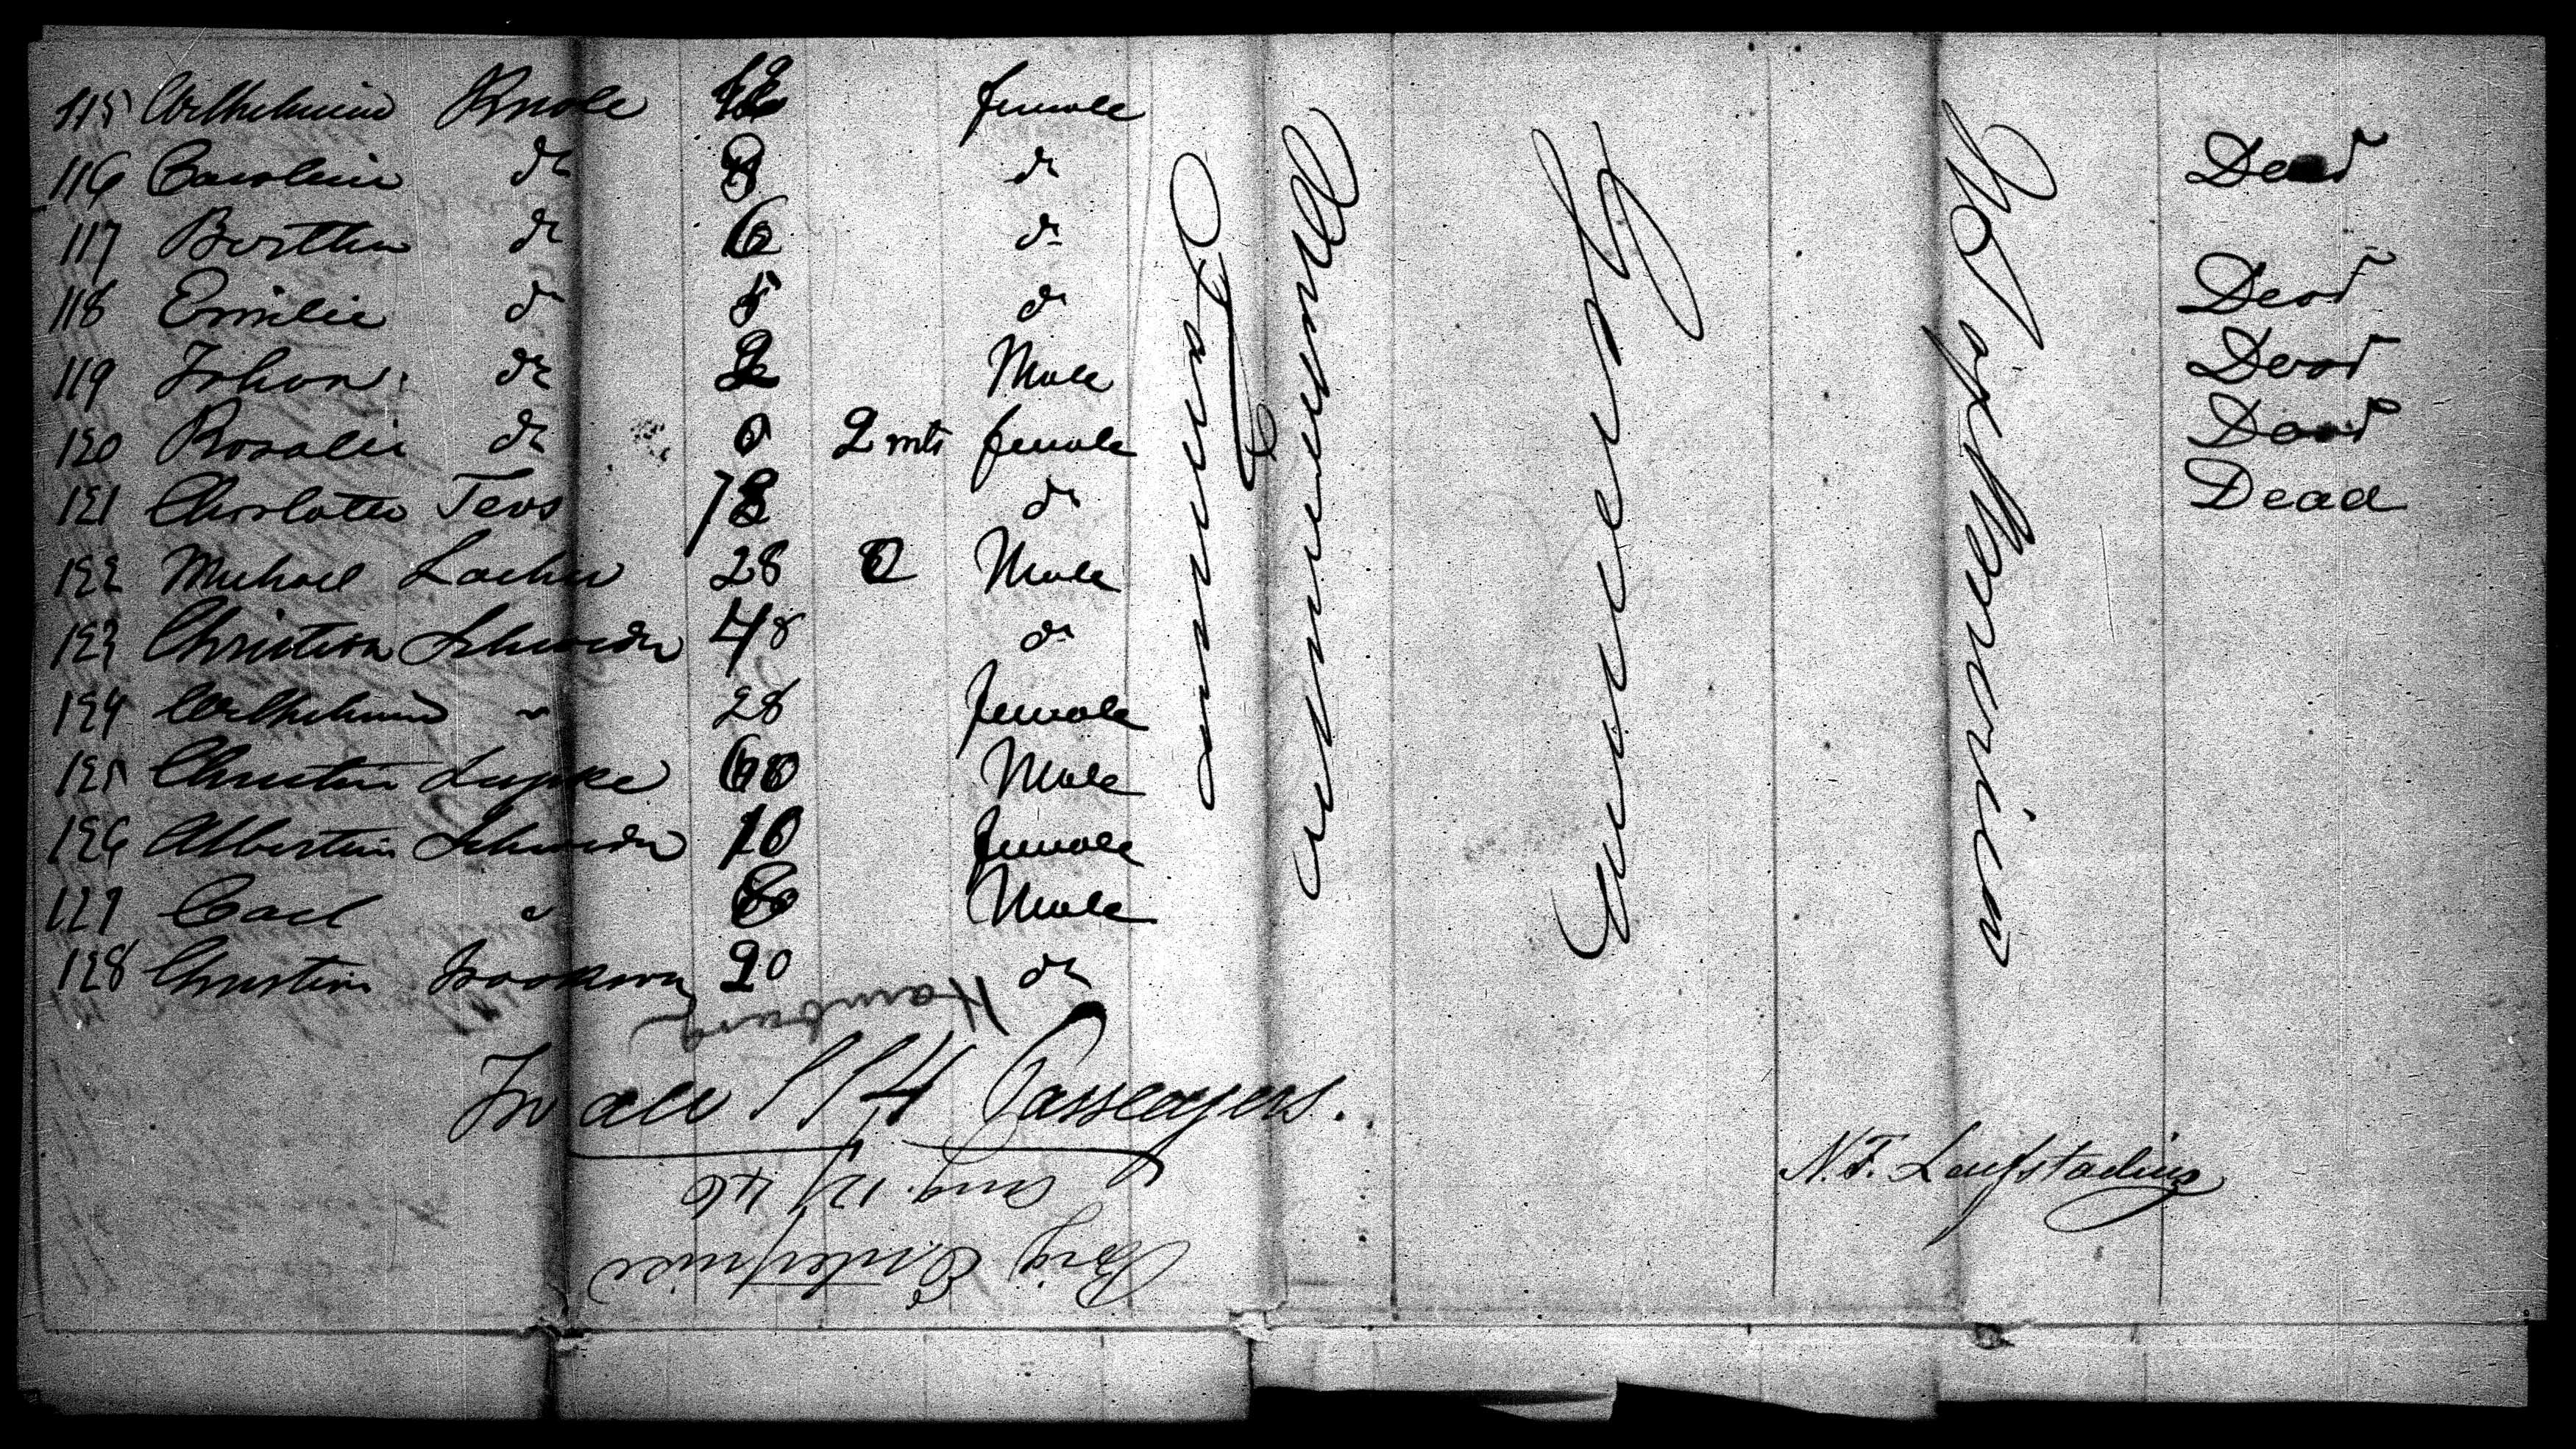 115 Wilhelmine Knole 12 female
116 Caroline do 8 do Dead
117 Berthe do 6 do
118 Emilie do 5 do Dead
119 Johan do 2 Male Dead
120 Rosalie do 0 2 mts female Dead
121 Charlotte Tews 78 do Dead
122 Michael 28 0 Male
123 Christian Schroeder 48 do
124 Wilhelmine " 28 female
125 Christian Lupke 60 Male
126 Albertine Schroeder 10 female
127 Carl " 8 Male
128 Christian 20 do
Germany
Germany
Wisconsin
Hamburg
In all 114 Passengers.
Aug. 12/46
Brig Enterprise
N.F.